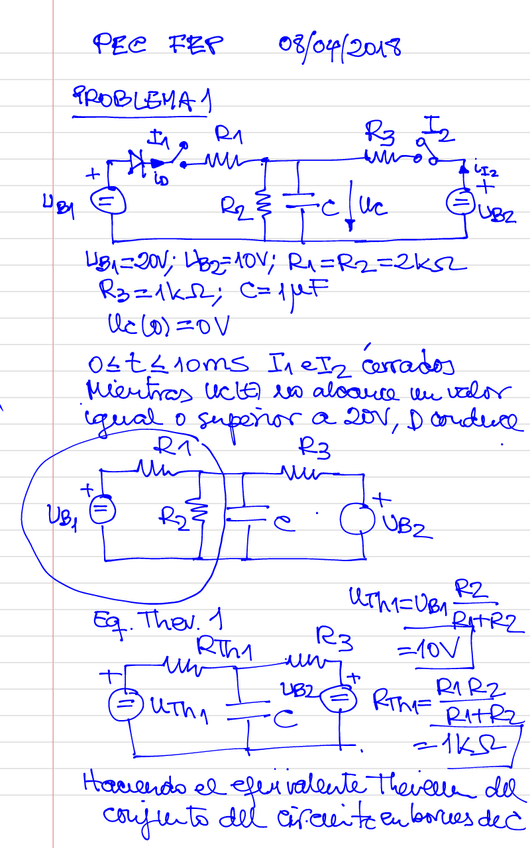 PEC FEP 08/04/2018
PROBLEMA 1
I1 R1 R3 I2
+ iD iI2
UB1 R2 C uc + UB2
UB1=20V; UB2=10V; R1=R2=2KΩ
R3=1KΩ; C=1μF
Uc(0)=0V
0≤t≤10ms I1 e I2 cerrados
Mientras uc(t) no alcance un valor
igual o superior a 20V, D conduce
R1 R3
+ +
UB1 R2 C UB2
UTh1=UB1 R2/(R1+R2)
=10V
Eq. Thev. 1
RTh1 R3
+ UB2 +
UTh1 C
RTh1= R1 R2/(R1+R2)
=1KΩ
Haciendo el equivalente Thevenin del
conjunto del circuito en bornes de C